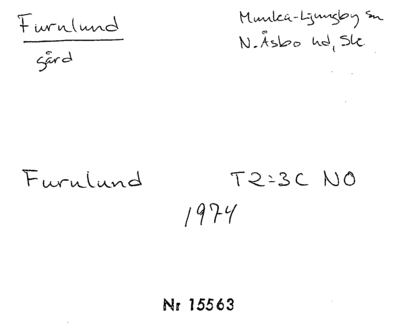 Furulund
Munka-Ljungby sn
gård
N. Åsbo hd, Sk
Furulund T2:3C NO
1974
Nr 15563